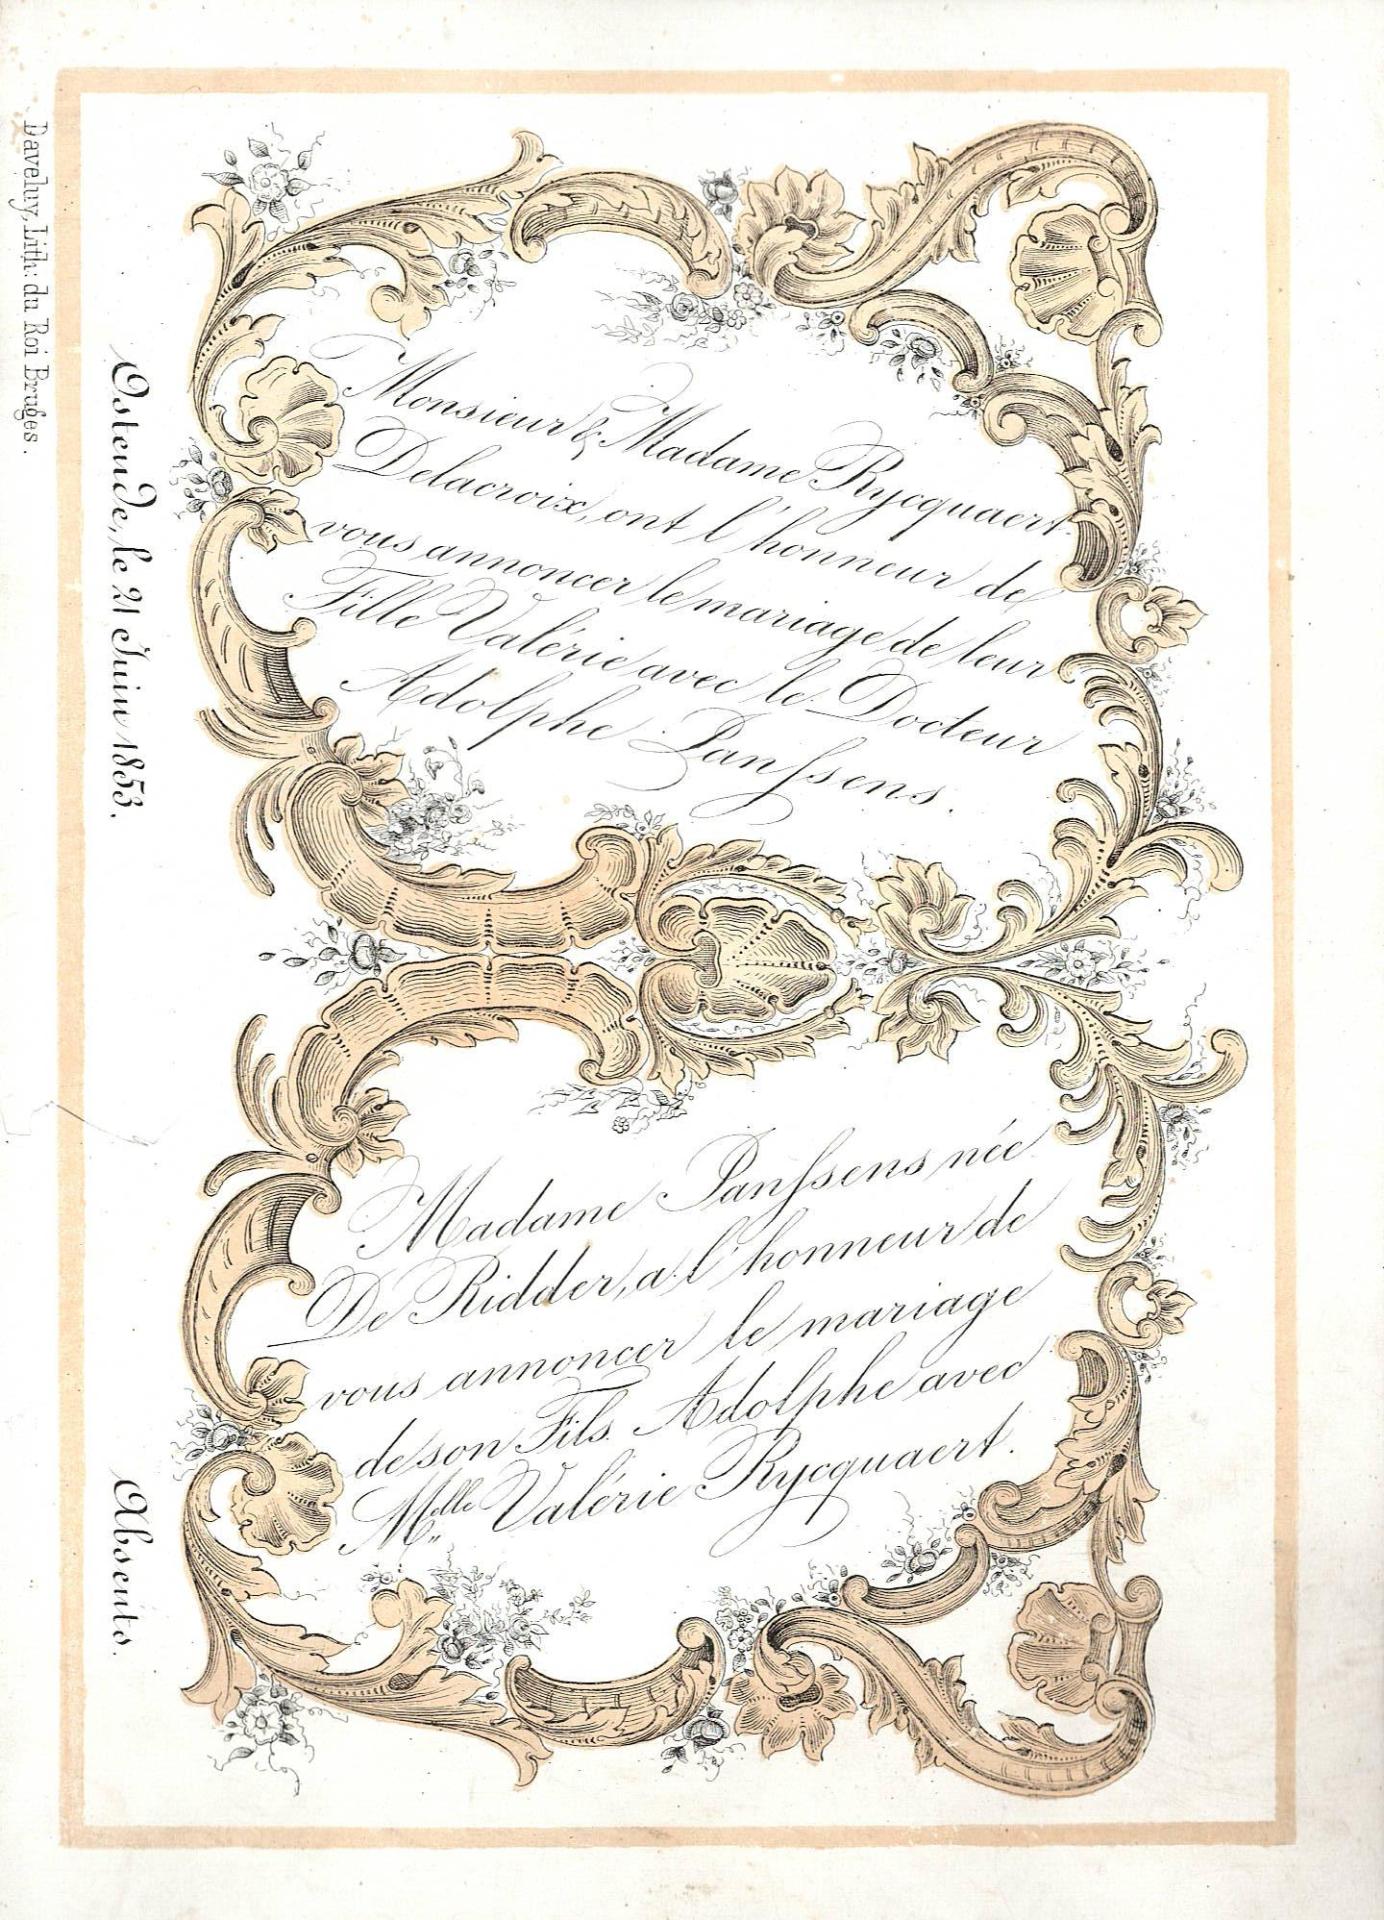 Monsieur & Madame Rycquaert
Delacroix, ont l'honneur de
vous annoncer le mariage de leur
Fille Valérie avec le Docteur
Adolphe Janssens.
Madame Janssens née
De Ridder, a l'honneur de
vous annoncer le mariage
de son Fils Adolphe avec
Melle Valérie Rycquaert.
Ostende, le 21 Juin 1853.
Absents.
Daveluy, Lith: du Roi Bruges.